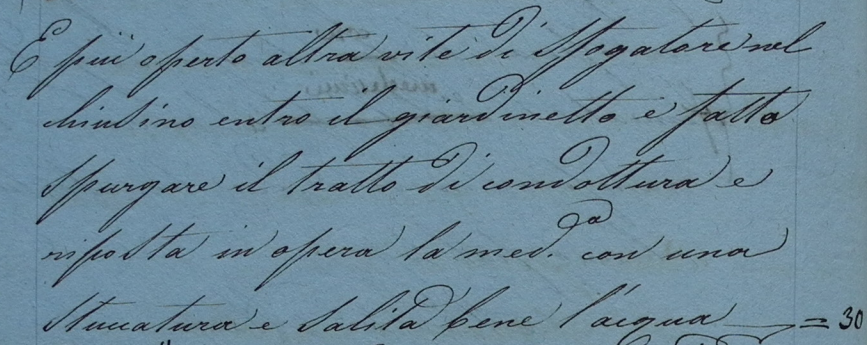 E più aperto altra vite di sfogatore nel
chiusino entro il giardinetto e fatto
spurgare il tratto di condottura e
riposta in opera la med.ª con una
stuccatura e salita bene l'acqua = 30